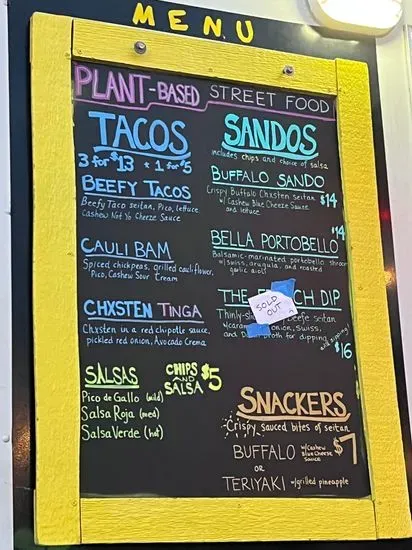 MENU
PLANT-BASED STREET FOOD
TACOS
3 for $13 * 1 for $5
BEEFY TACOS
Beefy Taco seitan, Pico, lettuce
Cashew Not Yo Cheeze Sauce
CAULI BAM
Spiced chickpeas, grilled cauliflower,
Pico, Cashew Sour Cream
CHXSTEN TINGA
Chxsten in a red chipotle sauce,
pickled red onion, Avocado Crema
SALSAS
Pico de Gallo (mild)
Salsa Roja (med)
Salsa Verde (hot)
CHIPS
AND
SALSA $5
SANDOS
includes chips and choice of salsa
BUFFALO SANDO
Crispy Buffalo Chxsten seitan
w/Cashew Blue Cheeze Sauce
and lettuce
$14
BELLA PORTOBELLO $14
Balsamic-marinated portobello shroom
w/swiss, arugula, and roasted
garlic aioli
THE F CH DIP
SOLD
OUT
Thinly-sl Beefe seitan
w/caram onion, Swiss,
and D broth for dipping
and sipping!
$16
SNACKERS
Crispy, sauced bites of seitan
BUFFALO w/Cashew
Blue Cheeze
Sauce
$7
OR
TERIYAKI w/grilled pineapple